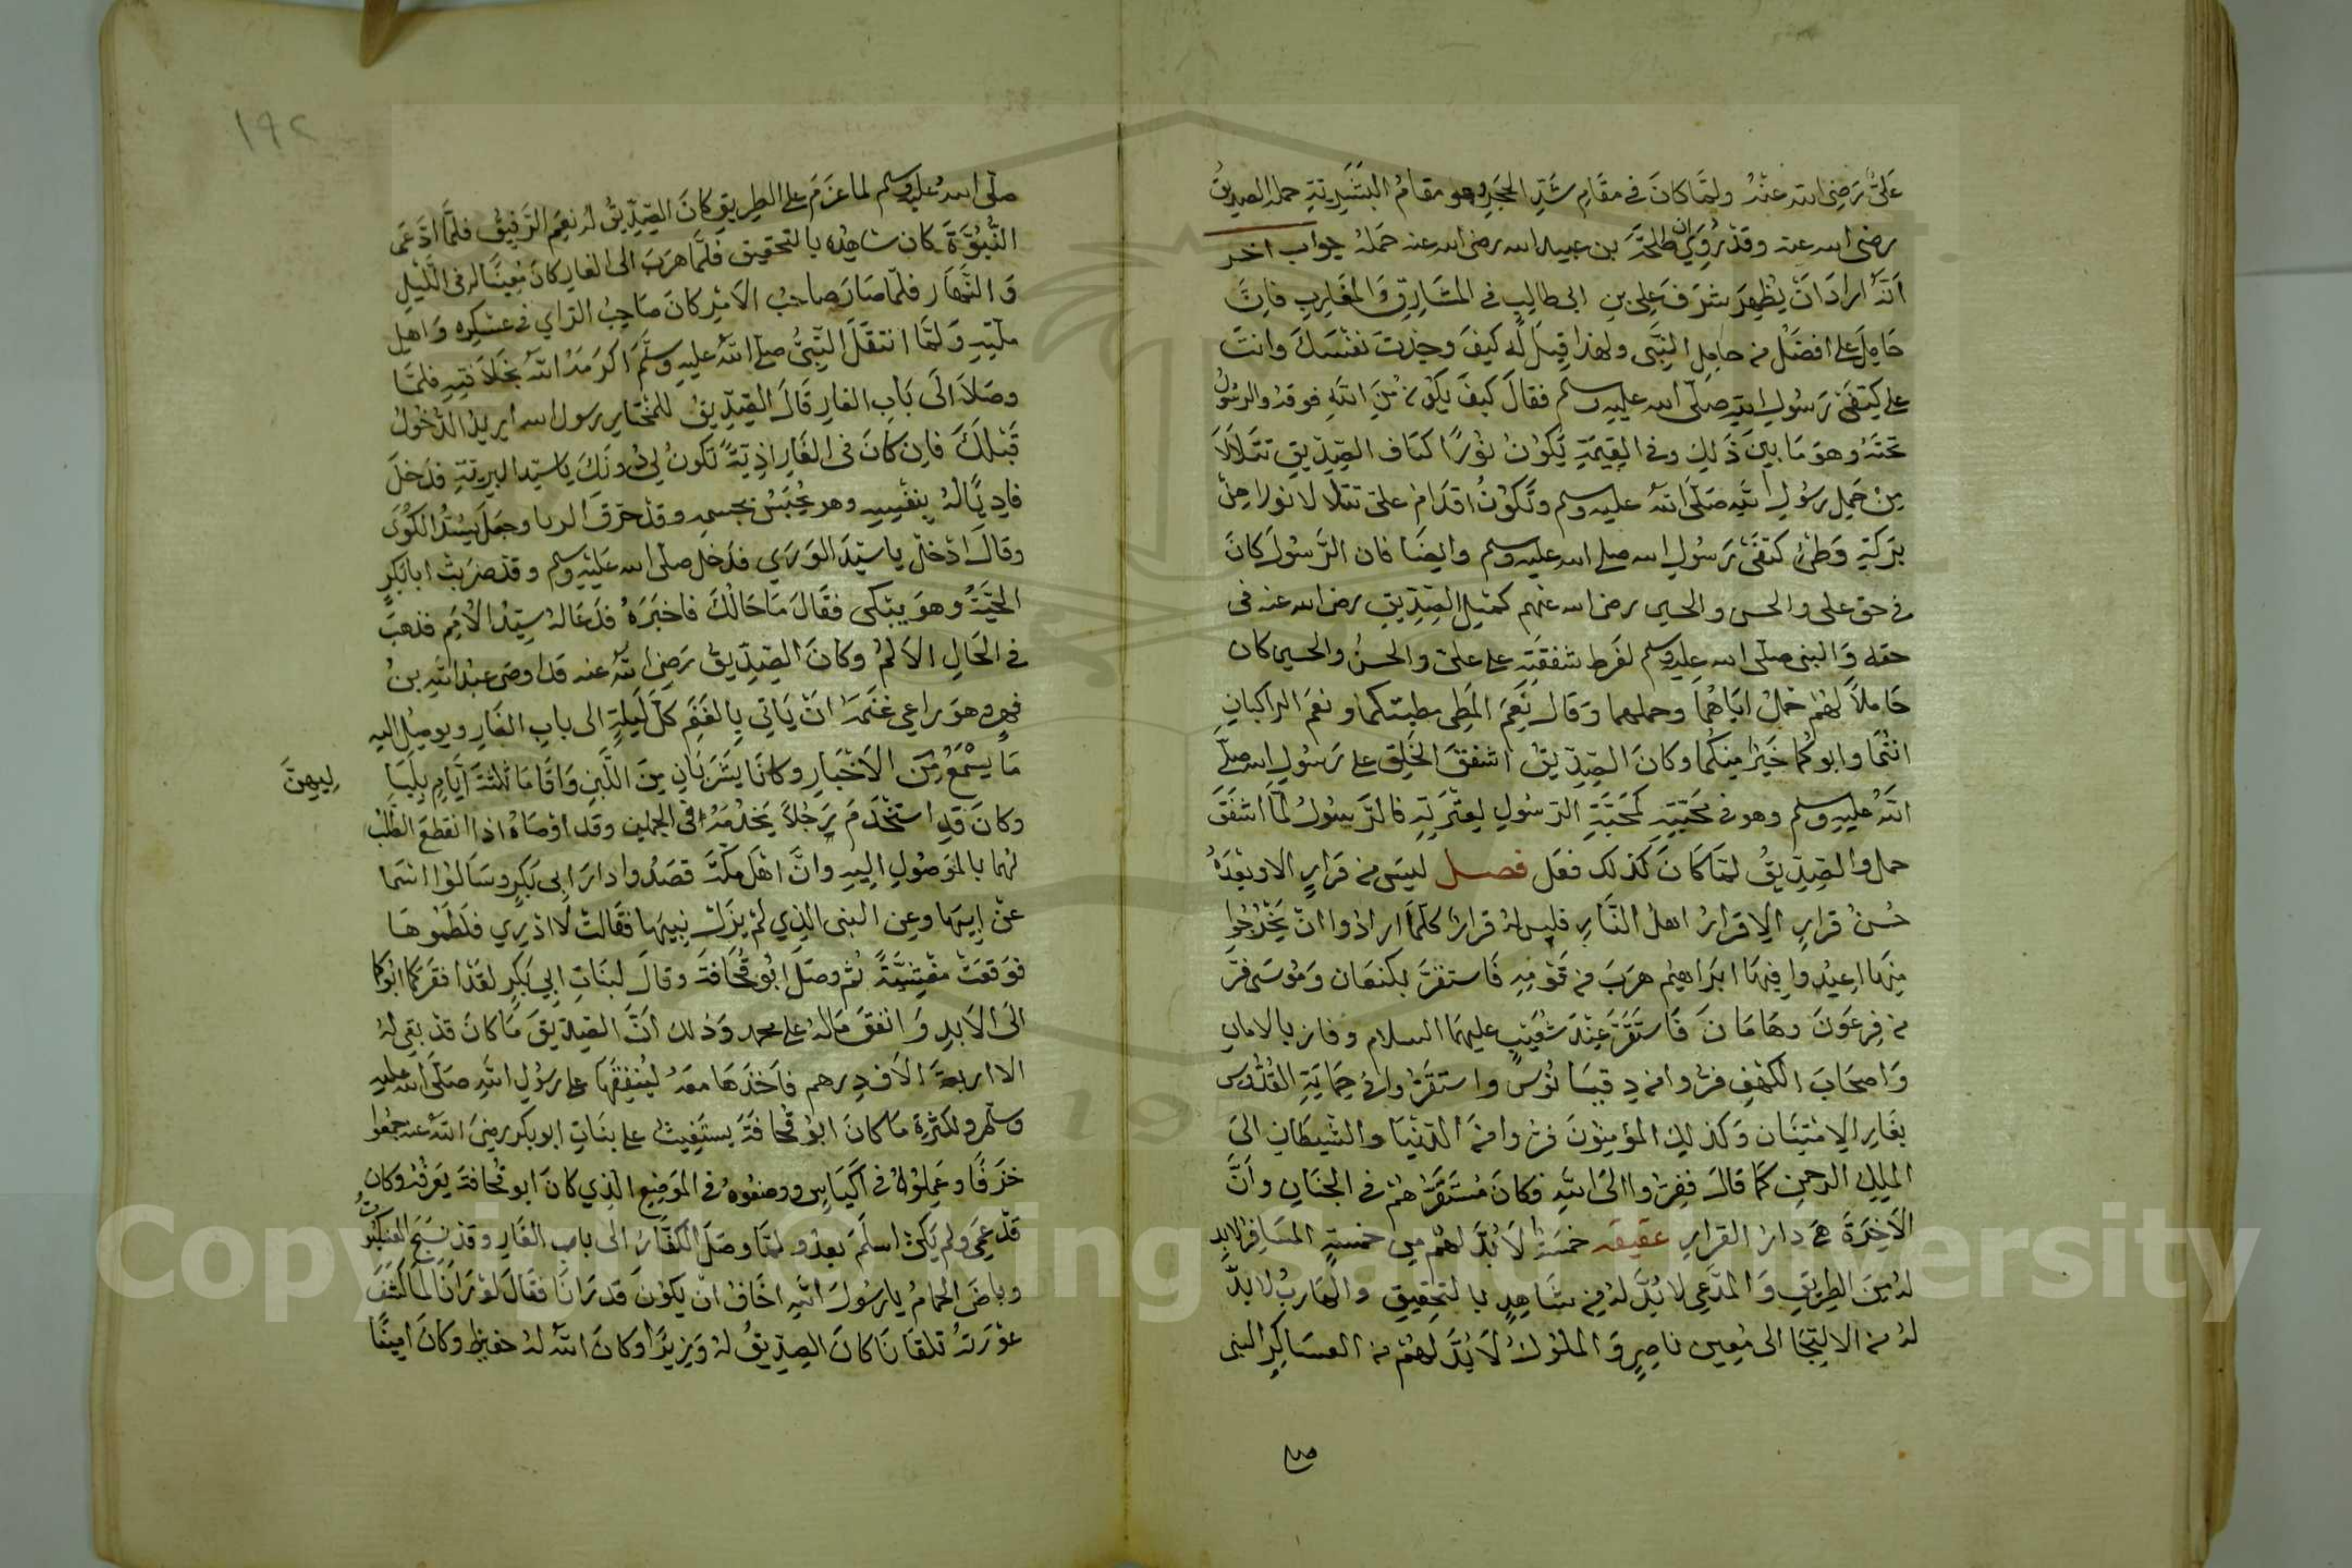 علي رضي الله عنه ولما كان في مقام شد الحجر وهو مقام البشرية حمله الصديق
رضي الله عنه وقد روي ان طلحة بن عبيد الله رضي الله عنه حمله جواب اخر
انه اراد ان يظهر شرف علي بن ابي طالب في المشارق والمغارب فان
حامل علي افضل من حامل النبي ولهذا قيل له كيف وجدت نفسك وانت
علي كتفي رسول الله صلى الله عليه وسلم فقال كيف يكون من الله فوقه والرسول
تحته وهو ما بين ذلك وفي القيمة يكون نورا كتاف الصديق تتلالا
من حمل رسول الله صلى الله عليه وسلم وتكون اقدام علي تتلالا نورا من
بركة وطئ كتفي رسول الله صلى الله عليه وسلم وايضا فان الرسول كان
في حق علي والحسن والحسين رضي الله عنهم كمثل الصديق رضي الله عنه في
حقه والنبي صلى الله عليه وسلم لفرط شفقته على علي والحسن والحسين كان
حاملا لهم حمل اباهما وحملهما وقال نعم المطي مطيتكما ونعم الراكبان
انتما وابوكما خير منكما وكان الصديق اشفق الخلق على رسول الله صلى
الله عليه وسلم وهو في محبته كمحبة الرسول لعترته فالرسول لما اشفق
حمل والصديق لما كان كذلك فعل فصل ليس من قرار الا وبعده
حسن قرار الا قرار اهل النار فليس له قرار كلما ارادوا ان يخرجوا
منها اعيدوا فيها ابراهيم هرب من قومه فاستقر بكنعان وموسى فر
من فرعون وهامان فاستقر عند شعيب عليهما السلام وفاز بالامان
واصحاب الكهف فروا من دقيانوس واستقروا في حماية القدوس
بغار الامتنان وكذلك المؤمنون فروا من الدنيا والشيطان الى
الملك الرحمن كما قال ففروا الى الله فكان مستقرهم في الجنان وان
الاخرة هي دار القرار عقيقه خمسة لا بد لهم من خمسة المسافر لا بد
له من الطريق والمدعي لا بد له من شاهد بالتحقيق والهارب لا بد
له من الالتجا الى معين ناصر والملوك لا بد لهم من العساكر النبي
١٩٢
صلى الله عليه وسلم لما عزم على الطريق كان الصديق له نعم الرفيق فلما ادعى
النبوة كان شاهده بالتحقيق فلما هرب الى الغار كان معينا له في الليل
والنهار فلما صار صاحب الامر كان صاحب الراي في عسكره واهل
ملته ولما انتقل النبي صلى الله عليه وسلم اكرمه الله بخلافته فلما
وصلا الى باب الغار قال الصديق للمختار رسول الله اريد الدخول
قبلك فان كان في الغار اذية تكون لي دونك يا سيد البرية فدخل
فاديا له بنفسه وهو يجس بجسمه وقد خرق الردا وجعل يسد الكوى
وقال ادخل يا سيد الورى فدخل صلى الله عليه وسلم وقد ضربت ابا بكر
الحية وهو يبكي فقال ما حالك فاخبره فدعا له سيد الامم فذهب
في الحال الالم وكان الصديق رضي الله عنه قد اوصى عبد الله بن
فهر وهو راعي غنمه ان ياتي بالغنم كل ليلة الى باب الغار ويوصل اليه
ما يسمع من الاخبار وكانا يشربان من اللبن واقاما ثلثة ايام بلياليهن
وكان قد استخدم رجلا يخدمه في الجملين وقد اوصاه اذا انقطع الطلب
لهما بالوصول اليه وان اهل مكة قصدوا دار ابي بكر وسالوا اسما
عن ابيها وعن النبي الذي لم يزل نبيها فقالت لا ادري فلطموها
فوقعت مغشية ثم وصل ابو قحافة وقال لبنات ابي بكر لقد افقركما ابوكما
الى الابد وانفق ماله على محمد وذلك ان الصديق ما كان قد بقي له
الا اربعة الاف درهم فاخذها معه لينفقها على رسول الله صلى الله عليه
وسلم ولكثرة ما كان ابو قحافة يستغيث على بنات ابو بكر رضي الله عنه جمعوا
خزفا وعملوه في اكياس ووضعوه في الموضع الذي كان ابو قحافة يعرفه وكان
قد عمي ولم يكن اسلم بعد ولما وصل الكفار الى باب الغار وقد نسج العنكبوت
وباض الحمام يا رسول الله اخاف ان يكون قد رانا فقال لو رانا لما كشف
عورته تلقانا كان الصديق له وزيرا وكان الله له حفيظ وكان امينا